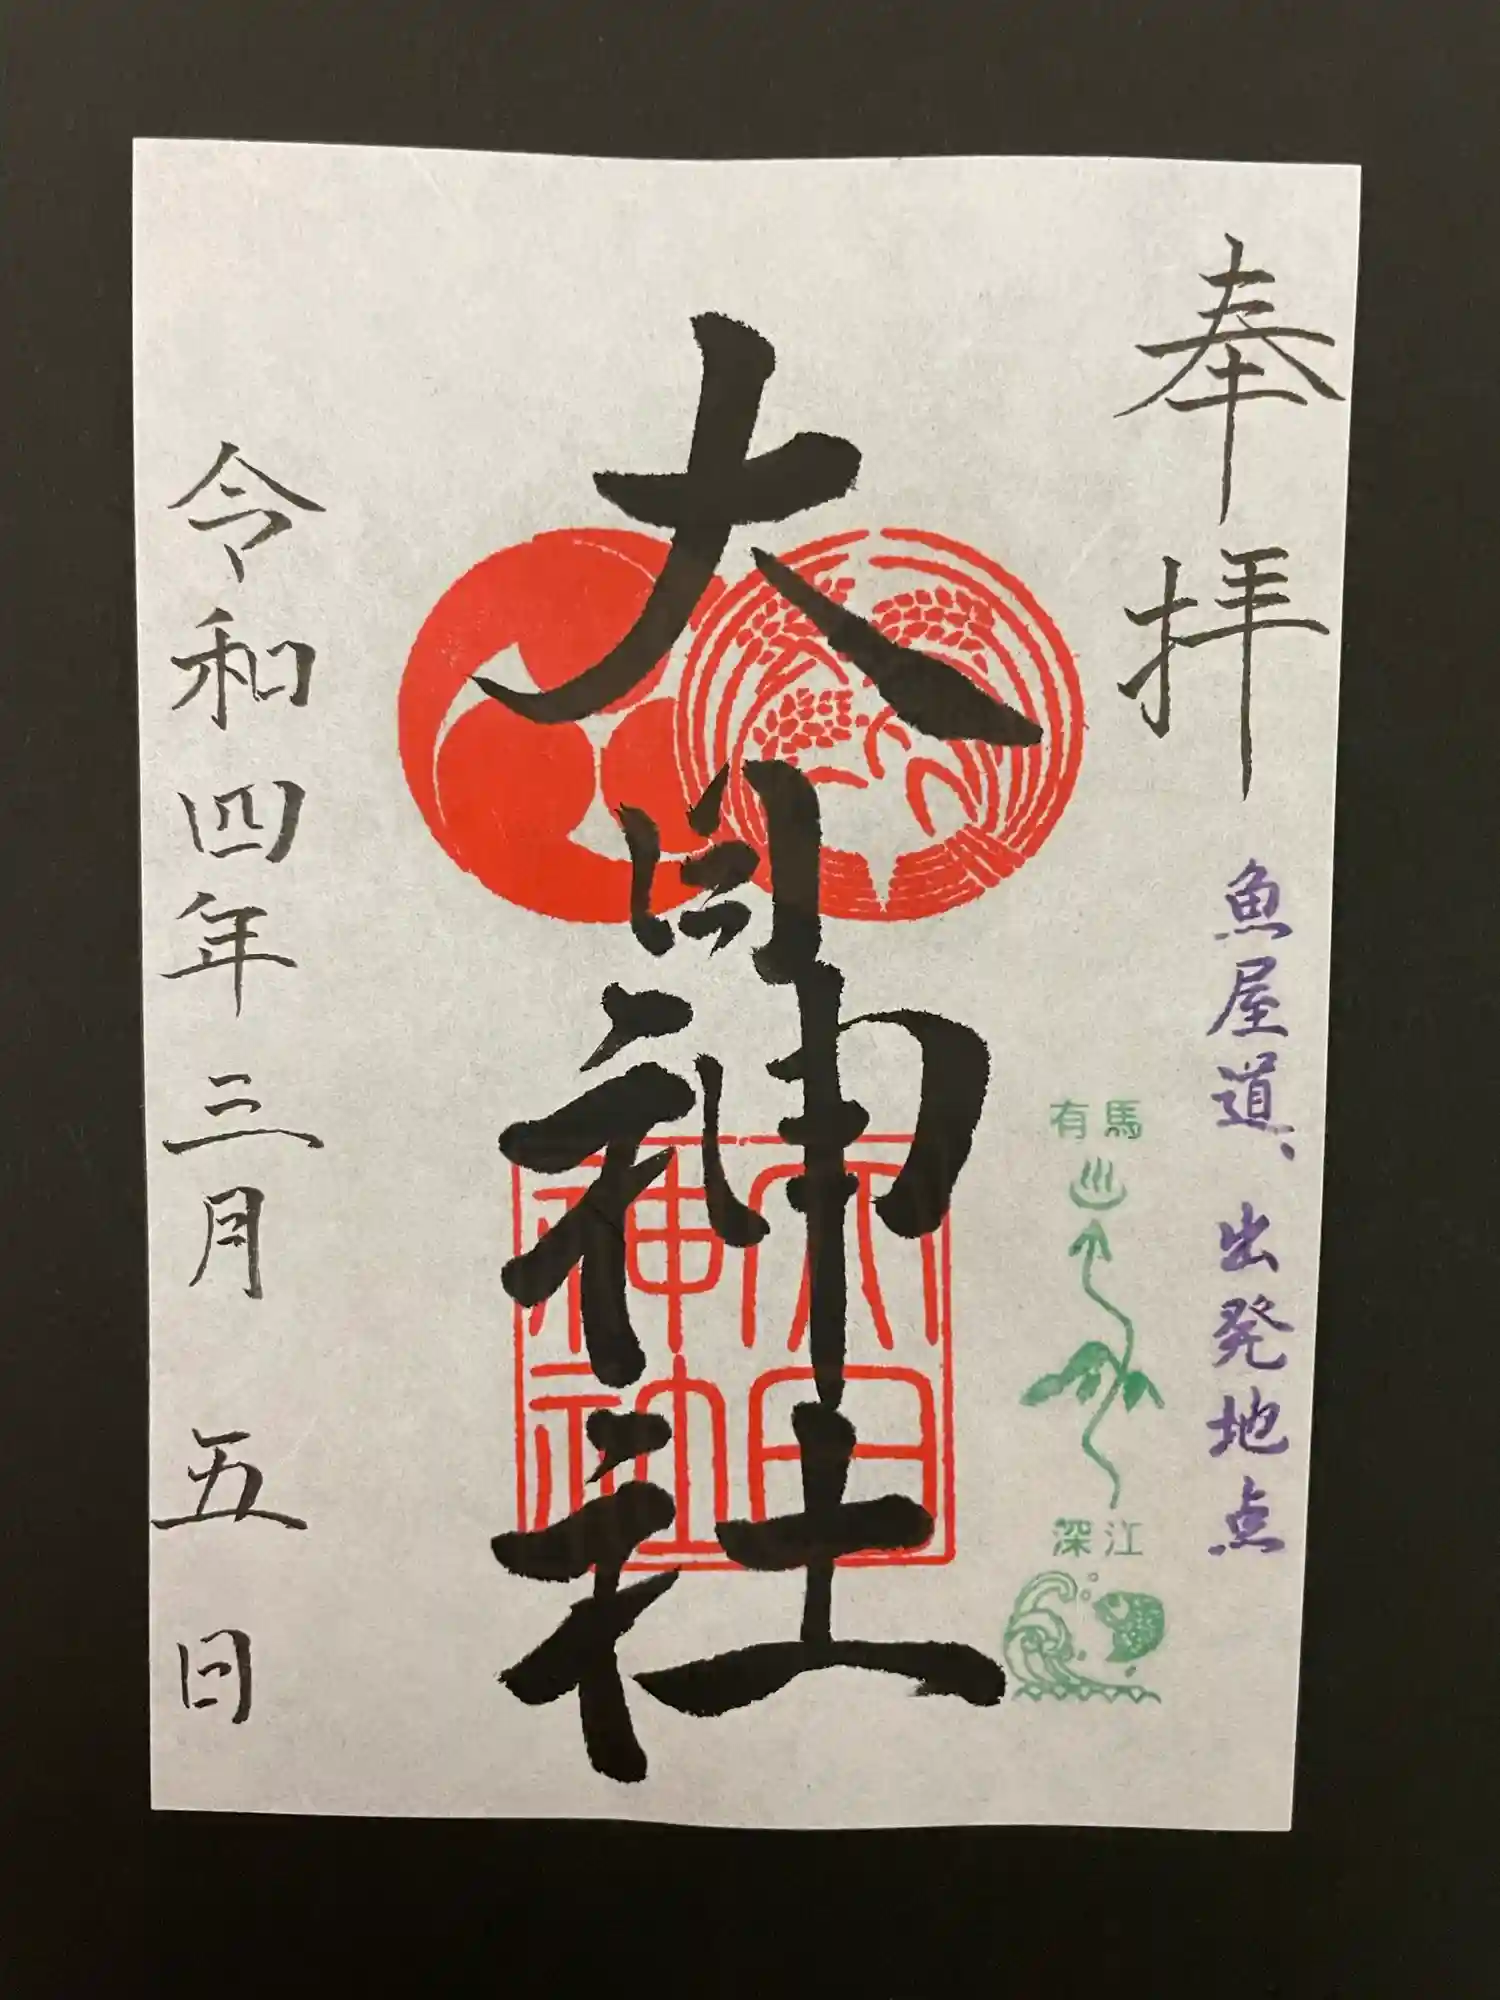 奉拝
魚屋道、出発地点
有馬
深江
大日神社
大日
神社
令和四年三月 五 日